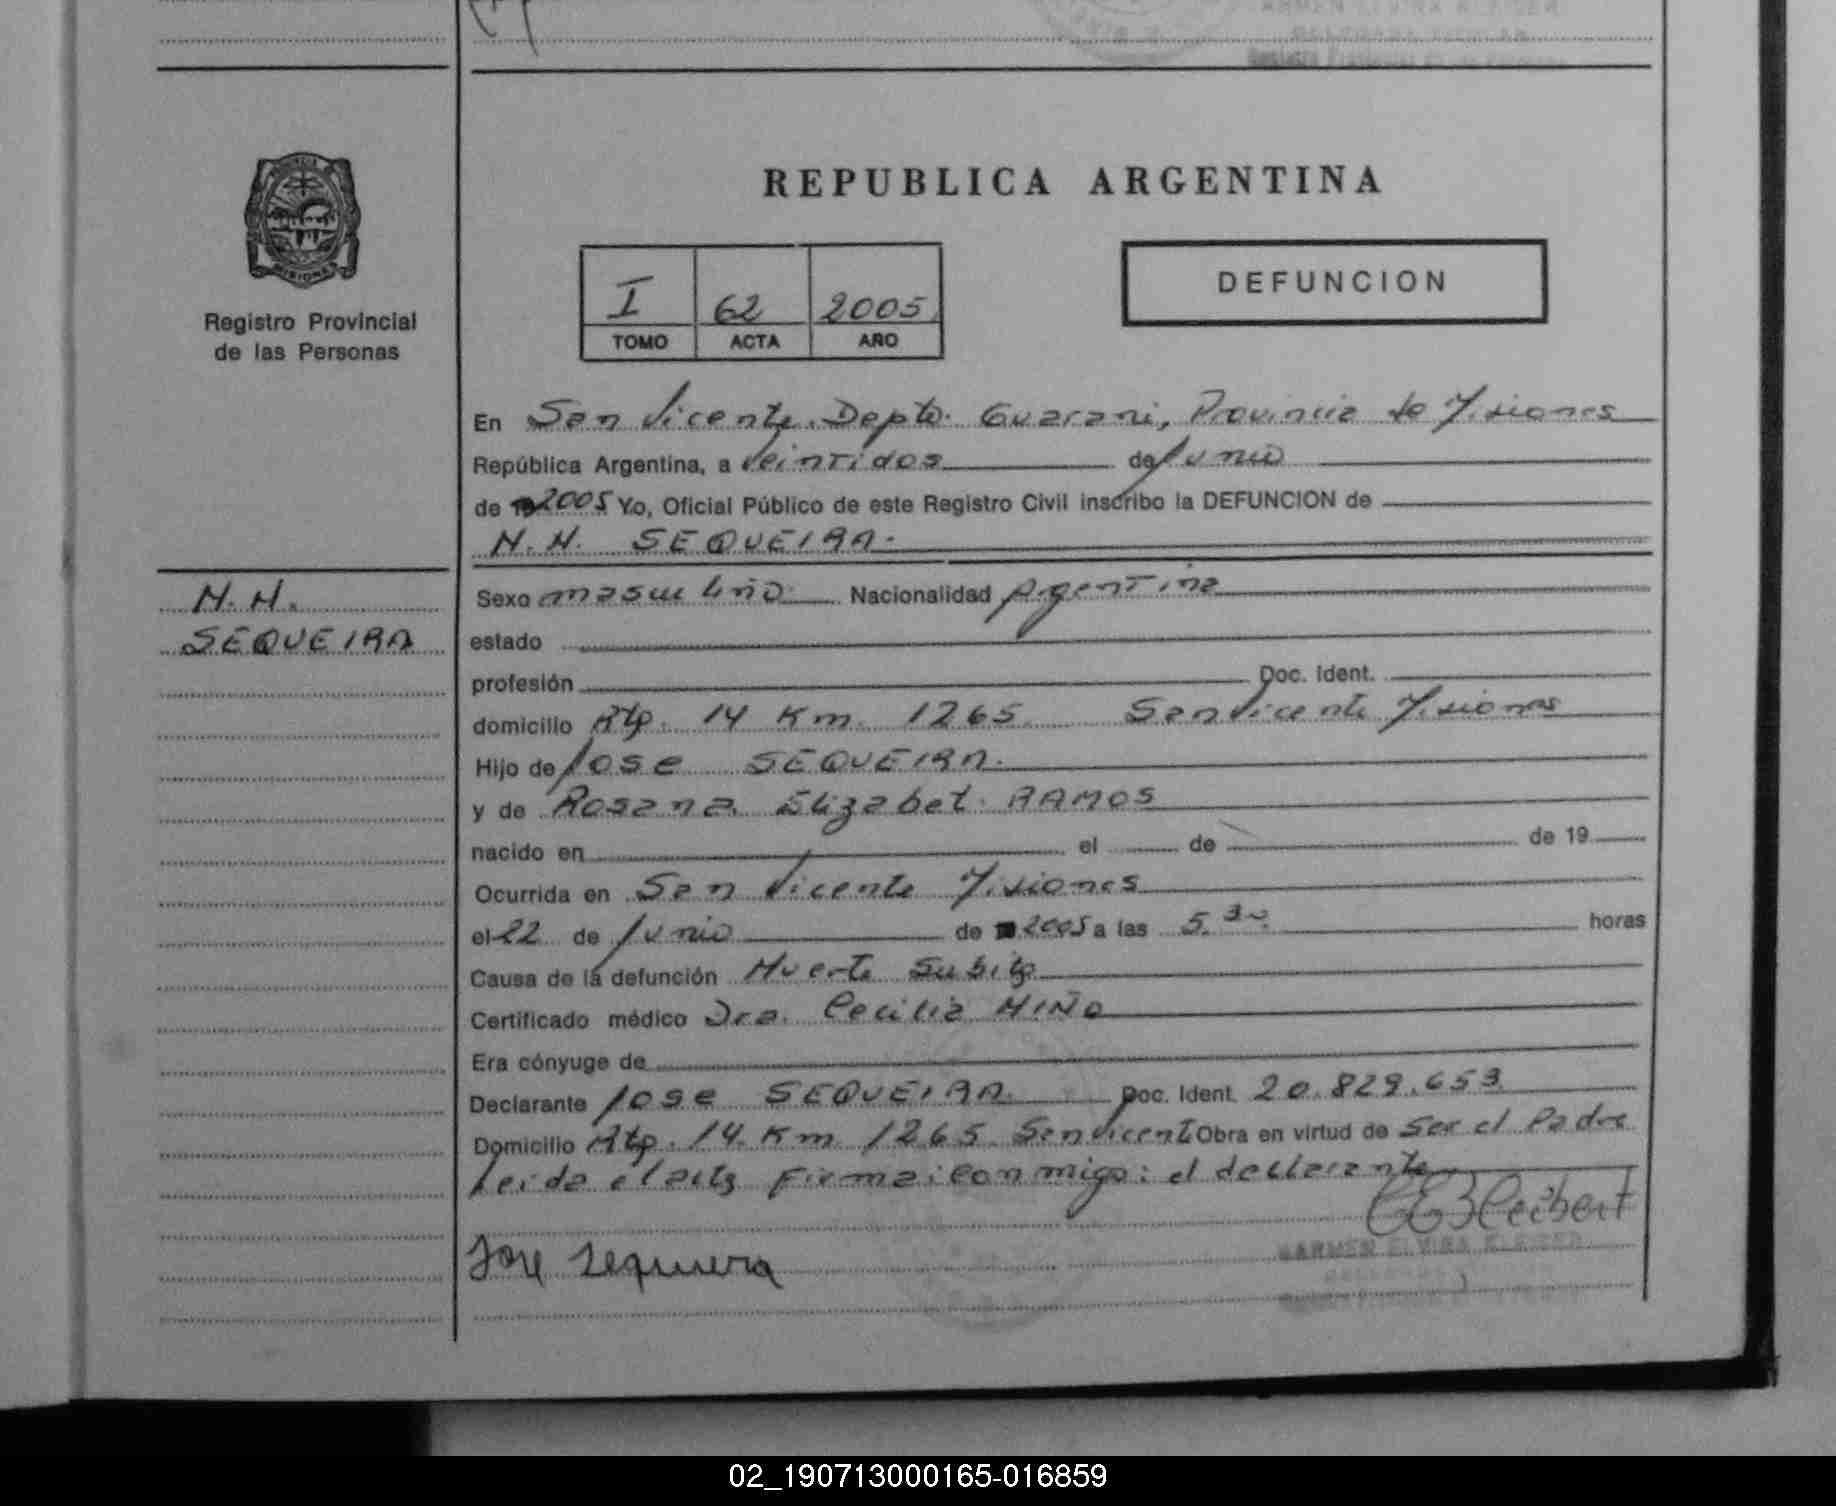 REPUBLICA ARGENTINA
PROVINCIA
MISIONES
Registro Provincial
de las Personas
I 62 2005
TOMO ACTA AÑO
DEFUNCION
En San Vicente. Depto. Guarani, Provincia de Misiones
República Argentina, a veintidos de Junio
de 2005 Yo, Oficial Público de este Registro Civil inscribo la DEFUNCION de
N.N. SEQUEIRA.
N.N.
SEQUEIRA
Sexo masculino Nacionalidad Argentina
estado
profesión Doc. Ident.
domicilio Rta. 14 Km. 1265 San Vicente Misiones
Hijo de Jose SEQUEIRA.
y de Rosana Elizabet. RAMOS
nacido en el de de 19
Ocurrida en San Vicente Misiones
el 22 de Junio de 2005 a las 5.30 horas
Causa de la defunción Muerte Subita
Certificado médico Dra. Cecilia MIÑO
Era cónyuge de
Declarante Jose SEQUEIRA. Doc. Ident. 20.829.653
Domicilio Rta. 14 Km 1265 San Vicente Obra en virtud de Ser el Padre
Leida el acta Firma: Conmigo: el declarante
Jose Sequiera
CARMEN ELVIRA
02_190713000165-016859